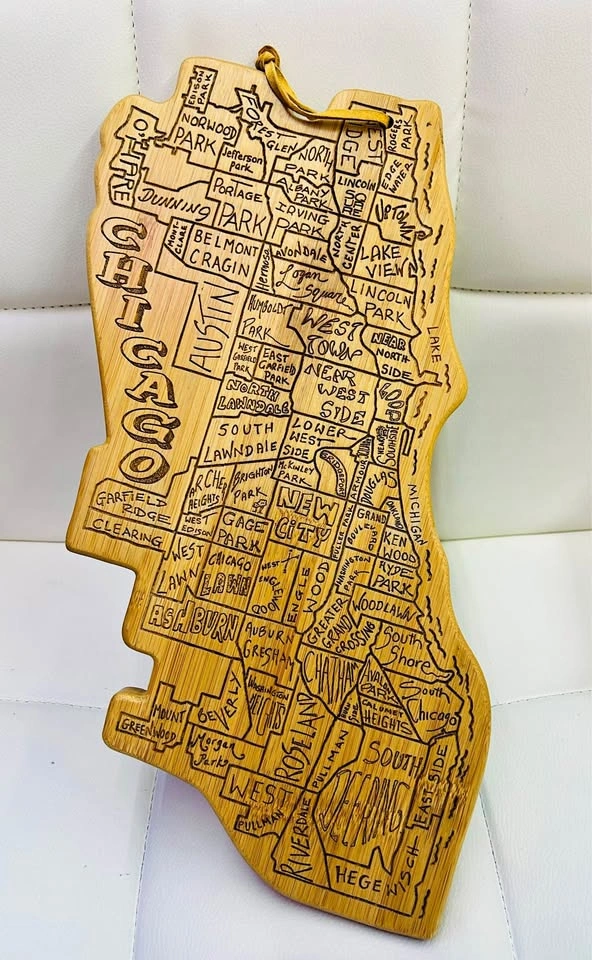 EDISON
PARK
NORWOOD
PARK
Jefferson
Park
FOREST
GLEN
NORTH
PARK
WEST
RIDGE
ROGERS
PARK
EDGE
WATER
O'HARE
DUNNING
PORTAGE
PARK
ALBANY
PARK
IRVING
PARK
LINCOLN
SQUARE
NORTH
CENTER
UPTOWN
LAKE
VIEW
CHICAGO
MONT-
CLARE
BELMONT
CRAGIN
Hermosa
AVONDALE
Logan
Square
LINCOLN
PARK
AUSTIN
HUMBOLDT
PARK
WEST
TOWN
NEAR
NORTH
SIDE
LAKE
WEST
GARFIELD
PARK
EAST
GARFIELD
PARK
NEAR
WEST
SIDE
LOOP
NORTH
LAWNDALE
SOUTH
LAWNDALE
LOWER
WEST
SIDE
NEAR
SOUTHSIDE
McKINLEY
PARK
BRIDGEPORT
ARMOUR
DOUGLAS
MICHIGAN
GARFIELD
RIDGE
CLEARING
ARCHER
HEIGHTS
BRIGHTON
PARK
WEST
EDISON
GAGE
PARK
NEW
CITY
FULLER PARK
GRAND
BOULEVARD
KEN
WOOD
HYDE
PARK
WASHINGTON
PARK
WEST
LAWN
CHICAGO
LAWN
WEST
ENGLEWOOD
ENGLE
WOOD
WOODLAWN
GREATER
GRAND
CROSSING
South
Shore
ASHBURN
AUBURN
GRESHAM
CHATHAM
AVALON
PARK
South
Chicago
CALUMET
HEIGHTS
BURN
SIDE
WASHINGTON
HEIGHTS
BEVERLY
MOUNT
GREENWOOD
Morgan
Park
ROSELAND
PULLMAN
SOUTH
DEERING
EAST SIDE
WEST
PULLMAN
RIVERDALE
HEGEWISCH